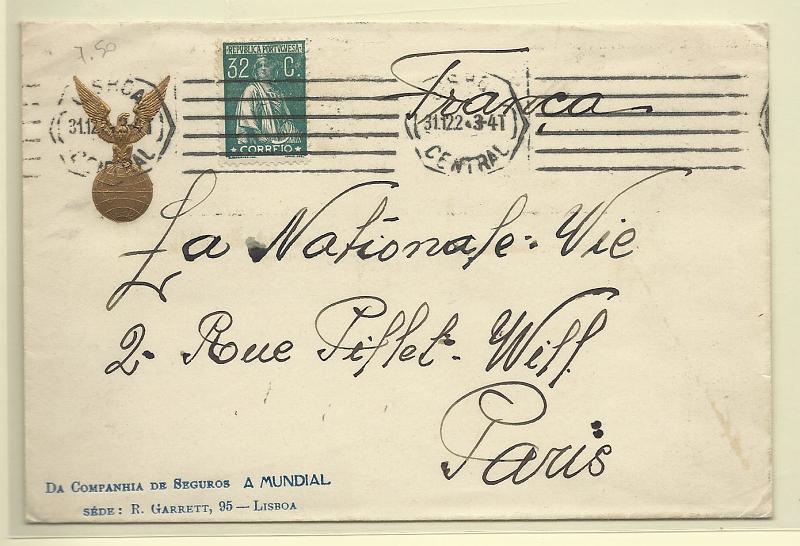 7.50
REPUBLICA PORTUGUESA
32 C.
CORREIO
LISBOA
31.12.2
CENTRAL
LISBOA
31.12.2 3-4T
CENTRAL
França
La Nationale-Vie
2- Rue Pillet-Will
Paris
DA COMPANHIA DE SEGUROS A MUNDIAL
SÉDE: R. GARRETT, 95 — LISBOA